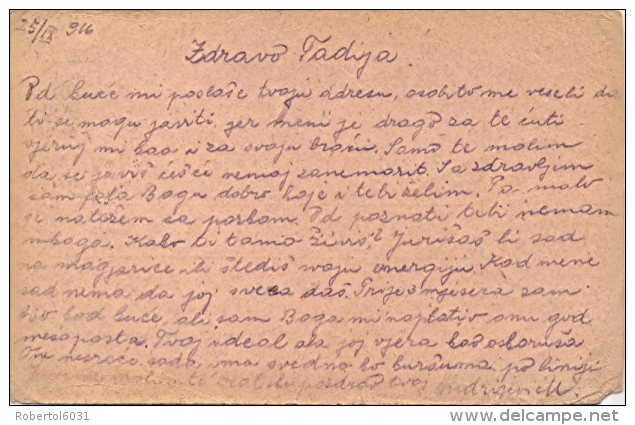 25/IX 916
Zdravo Tadija
Od kuće mi poslaše tvoju adresu, osobito me veseli da
ti se mogu javiti, jer meni je drago za te čuti
vjeruj mi kao i za svoju braću. Samo te molim
da se javiš češće nemoj zanemarit. Sa zdravljem
sam fala Bogu dobro koje i tebi želim. Po malo
se natežem sa Od poznati tebi nemam
nikoga. Kako ti tamo živiš? Jurišaš li sad
na magjarice ili štediš svoju energiju. Kad mene
sad nema da joj svega daš. Prije 3 mjeseca sam
bio kod kuće, ali sam Boga mi naplativ onu god
mesoposta. Tvoj ideal ala joj vjera kao oskoruša
One nesreće sada, ima svedna ko buršuma po liniji
pozdrav tvoj
Roberto16031
www.delcampe.net